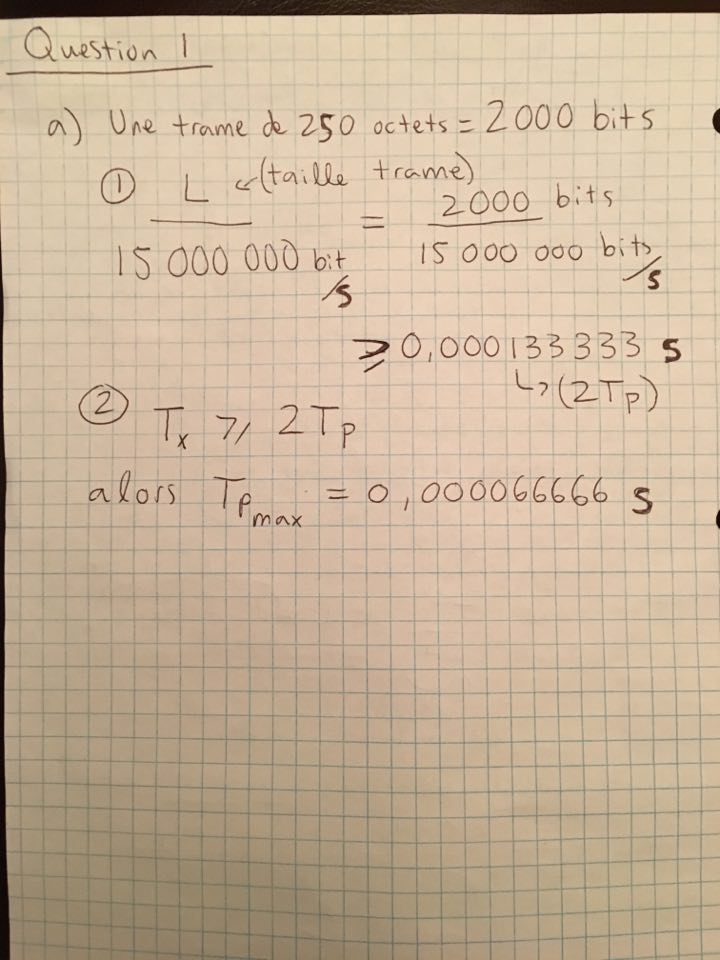 Question 1
a) Une trame de 250 octets = 2000 bits
① L ↙(taille trame) = 2000 bits
15 000 000 bit/s 15 000 000 bits/s
⩾ 0,000133333 s
↳(2Tp)
② Tx ⩾ 2Tp
alors Tpmax = 0,000066666 s